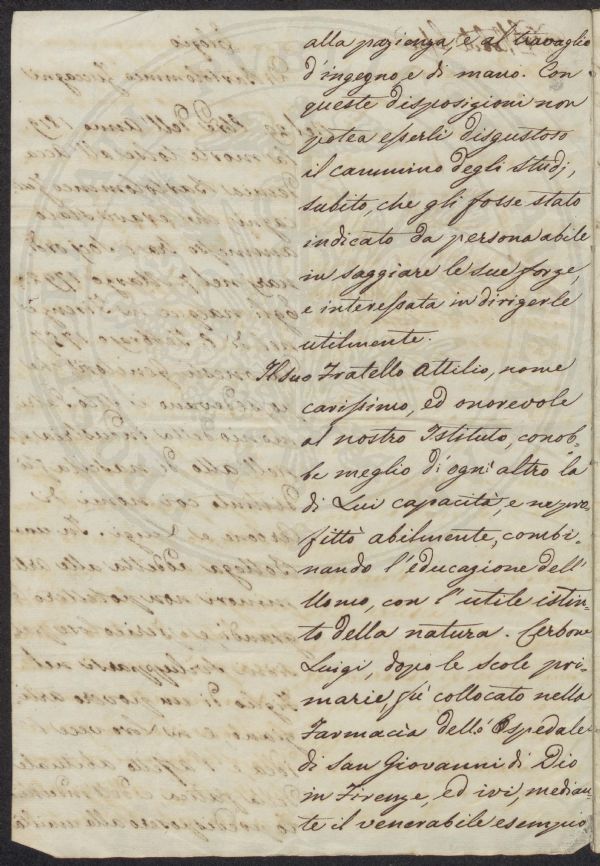 alla pazienza, e al travaglio
d'ingegno, e di mano. Con
queste disposizioni non
potea esserli disgustoso
il cammino degli studj,
subito, che gli fosse stato
indicato da persona abile
in saggiare le sue forze,
e interessata in dirigerle
utilmente.
Il suo Fratello Attilio, nome
carissimo, ed onorevole
al nostro Istituto, conob-
be meglio d'ogni altro la
di Lui capacità, e ne pro-
fittò abilmente, combi-
nando l'educazione dell'
Uomo, con l'utile istin-
to della natura. Cerbone
Luigi, dopo le scole pri-
marie, fù collocato nella
Farmacia dello Ospedale
di San Giovanni di Dio
in Firenze, ed ivi, median-
te il venerabile esempio